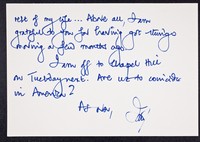 rest of my life... Above all, I am
grateful to you for having got things
moving a few months ago.
I am off to Chapel Hill
on Tuesday next. Are we to coincide
in America?
As ever,